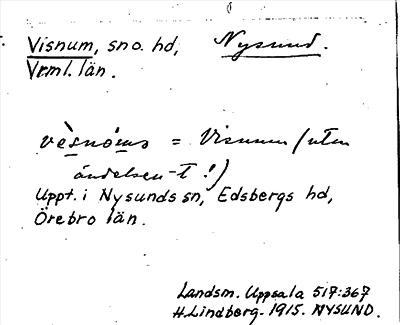 Visnum, sno. hd, Nysund.
Vrml. län.
vèsnóms = Visnum (utan
ändelsen -t!)
Uppt. i Nysunds sn, Edsbergs hd,
Örebro län.
Landsm. Uppsala 517:367
H. Lindberg. 1915. NYSUND.